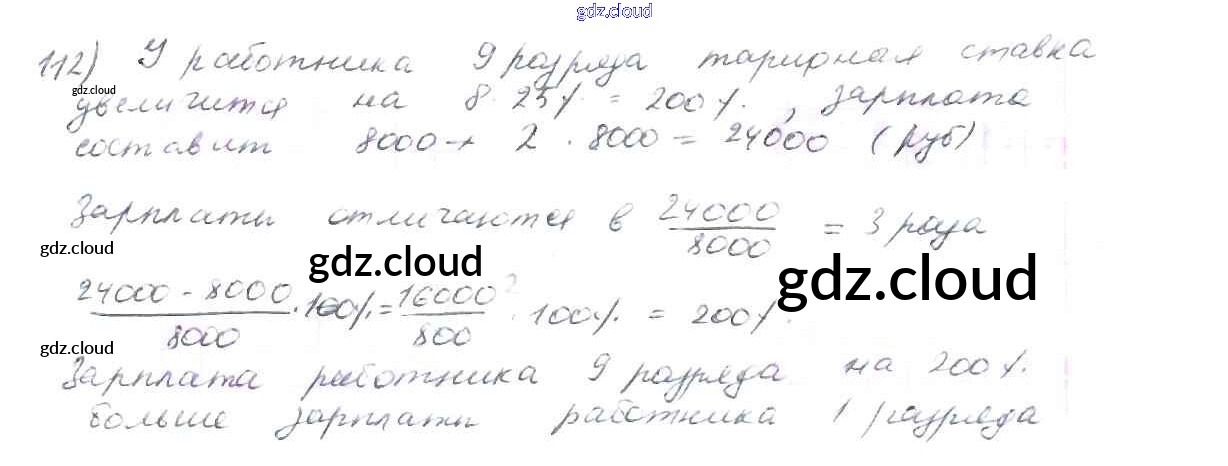 gdz.cloud
112) У работника 9 разряда тарифная ставка
gdz.cloud
увеличится на 8·25% = 200%, зарплата
составит 8000 + 2·8000 = 24000 (руб)
Зарплаты отличаются в 24000/8000 = 3 раза
gdz.cloud
gdz.cloud
gdz.cloud
(24000 - 8000)/8000 · 100% = 16000/800 · 100% = 200%.
gdz.cloud
Зарплата работника 9 разряда на 200%.
больше зарплаты работника 1 разряда